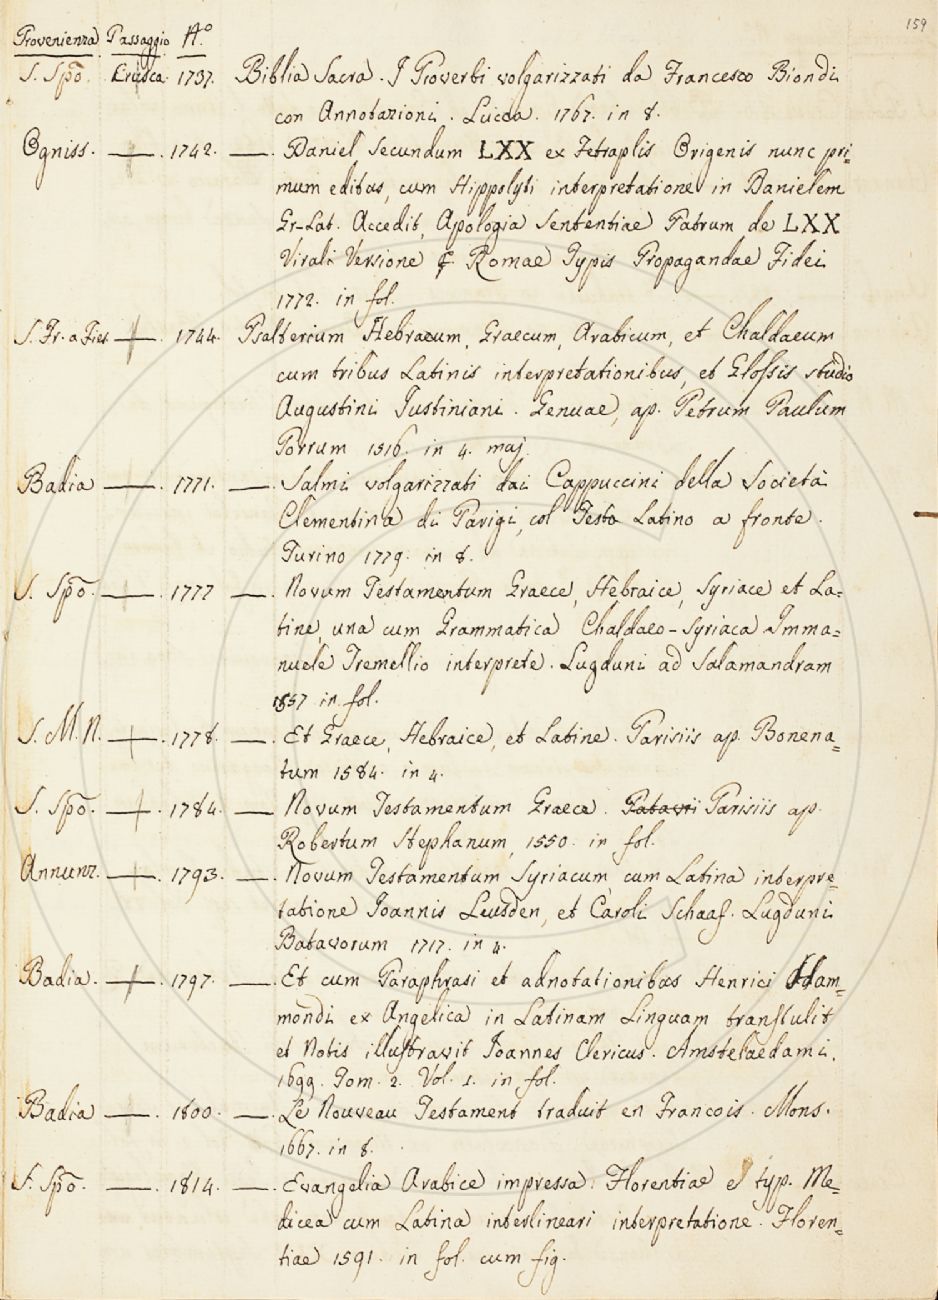 159
Provenienza Passaggio N.º
S. Spõ. Crusca. 1737. Biblia Sacra. I Proverbi volgarizzati da Francesco Biondi
con Annotazioni. Lucca. 1767. in 8.
Ogniss. —. 1742. —. Daniel secundum LXX ex Tetraplis Origenis nunc pri=
mum editus, cum Hippolyti interpretatione in Danielem
Gr-Lat. Accedit, Apologia sententiae Patrum de LXX
Virali Versione &. Romae Typis Propagandae Fidei
1772. in fol.
S. Fr. a Fies. —. 1744. Psalterium Hebraeum, Graecum, Arabicum, et Chaldaeum
cum tribus Latinis interpretationibus, et Glossis studio
Augustini Iustiniani. Genuae, ap. Petrum Paulum
Porrum 1516. in 4. maj.
Badia —. 1771. —. Salmi volgarizzati dai Cappuccini della Società
Clementina di Parigi, col Testo Latino a fronte.
Turino 1779. in 8.
S. Spõ. —. 1777 —. Novum Testamentum Graece, Hebraice, Syriace et La=
tine, una cum Grammatica Chaldaeo-Syriaca Imma=
nuele Tremellio interprete. Lugduni ad Salamandram
1857 in fol.
S. M. N. —. 1778. —. Et Graece, Hebraice, et Latine. Parisiis ap. Bonena=
tum 1584. in 4.
S. Spõ. —. 1784. — Novum Testamentum Graece. Patavii Parisiis ap.
Robertum Stephanum, 1550. in fol.
Annunz. —. 1793. —. Novum Testamentum Syriacum, cum Latina interpre=
tatione Joannis Leusden, et Caroli Schaaf. Lugduni
Batavorum 1717. in 4.
Badia. —. 1797. —. Et cum Paraphrasi et adnotationibus Henrici Ham=
mondi ex Angelica in Latinam Linguam transtulit
et Notis illustravit Joannes Clericus. Amstelaedami.
1699. Tom. 2. Vol. 1. in fol.
Badia —. 1800. —. Le Nouveau Testament traduit en Francois. Mons.
1667. in 8.
S. Spõ. —. 1814. —. Evangelia Arabice impressa. Florentiae e typ. Me=
dicea cum Latina interlineari interpretatione. Floren=
tiae 1591. in fol. cum fig.